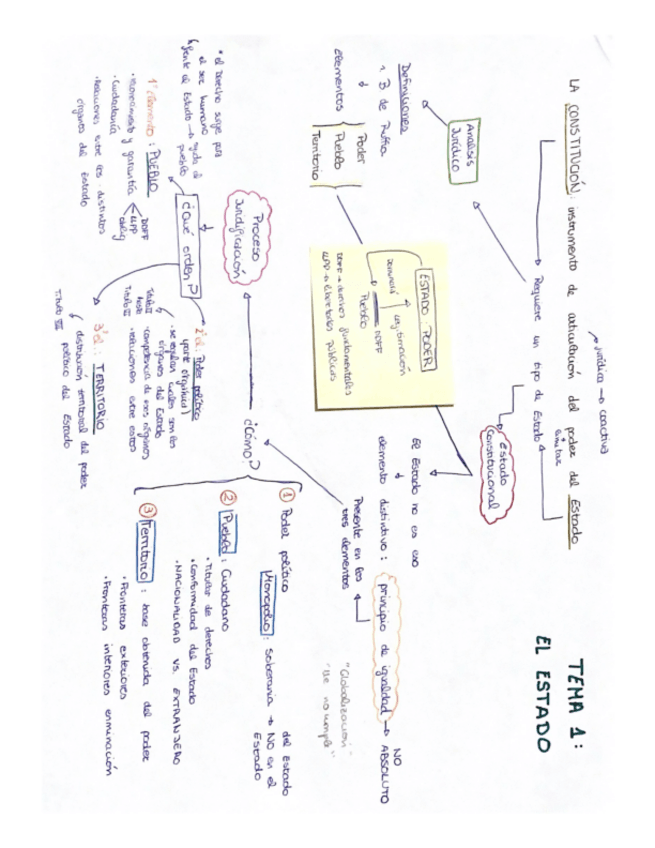 TEMA 1:
EL ESTADO
LA CONSTITUCIÓN: instrumento de articulación del poder del Estado
jurídica → coactiva
limitar
Requiere un tipo de Estado
Estado
Constitucional
Análisis
Jurídico
Definiciones
1. B de Ruffia
elementos
Poder
Pueblo
Territorio
ESTADO PODER
Legitimación
Democracia
DDFF
Pueblo
DDFF → derechos fundamentales
LLPP → libertades públicas
El Estado no es eso
elemento distintivo: principio de igualdad → NO
ABSOLUTO
Presente en los
tres elementos
"Globalización"
"Se rompe"
¿Cómo?
① Poder político
del Estado
Monopolio: soberanía → NO en el
Estado
② Pueblo: Ciudadano
• Titular de derechos
• Conformidad del Estado
• NACIONALIDAD VS. EXTRANJERO
③ Territorio: base obtenida del poder
• Fronteras exteriores
• Fronteras interiores eliminación
Proceso
Juridificación
• el Derecho surge para
el ser humano
frente al Estado → ayuda al
pueblo
¿Qué orden?
1º elemento: PUEBLO
• reconocimiento y garantía
DDFF
LLPP
• Ciudadanía
• Relaciones entre los distintos
órganos del Estado
2º el.: Poder político
(parte orgánica)
• se regulan cuáles son los
órganos del Estado
• competencia de esos órganos
• relaciones entre estos
3º el.: TERRITORIO
distribución territorial del poder
político del Estado
Título VIII